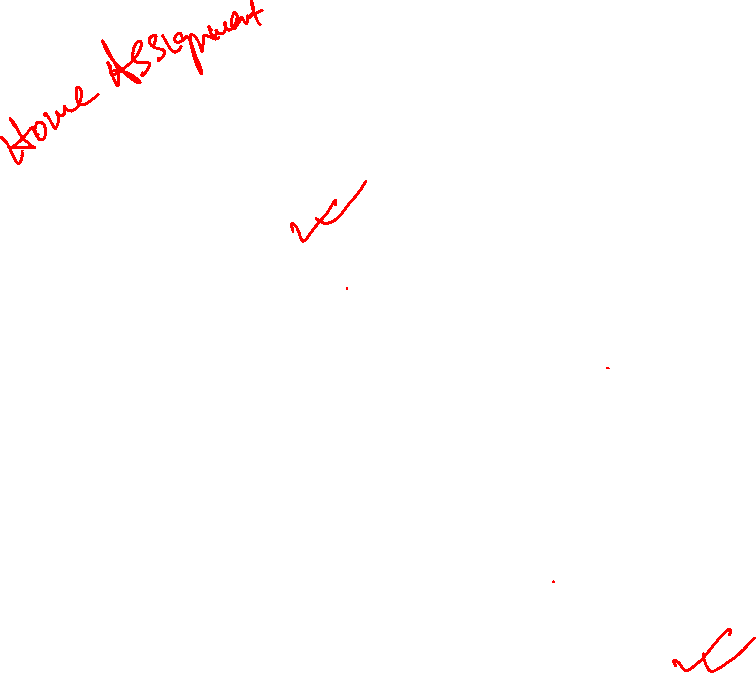 Home Assignment